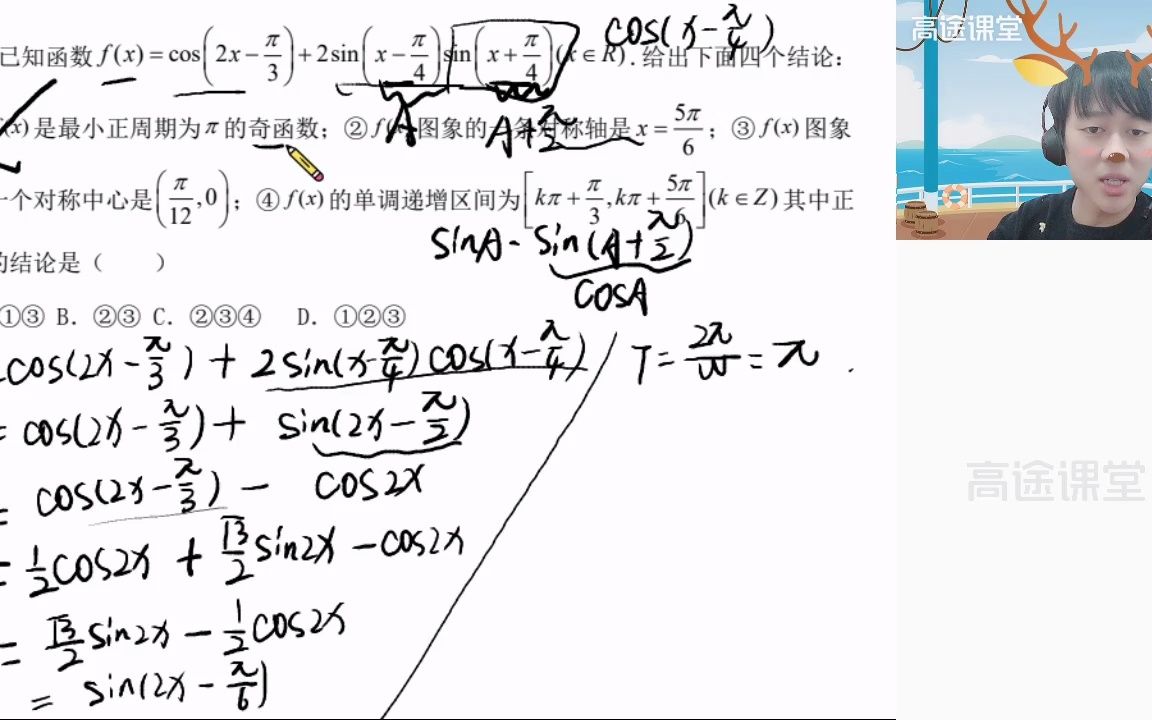 已知函数 f(x) = cos(2x − π/3) + 2sin(x − π/4)sin(x + π/4)(x ∈ R). 给出下面四个结论:
cos(x − π/4)
高途课堂
(x) 是最小正周期为 π 的奇函数; ② f(x) 图象的一条对称轴是 x = 5π/6; ③ f(x) 图象
A
A + π/2
一个对称中心是 (π/12, 0); ④ f(x) 的单调递增区间为 [kπ + π/3, kπ + 5π/6](k ∈ Z) 其中正
的结论是( )
sinA · sin(A + π/2)
cosA
①③ B. ②③ C. ②③④ D. ①②③
cos(2x − π/3) + 2sin(x − π/4)cos(x − π/4)
T = 2π/w = π
= cos(2x − π/3) + sin(2x − π/2)
= cos(2x − π/3) − cos2x
高途课堂
= 1/2 cos2x + √3/2 sin2x − cos2x
= √3/2 sin2x − 1/2 cos2x
= sin(2x − π/6)